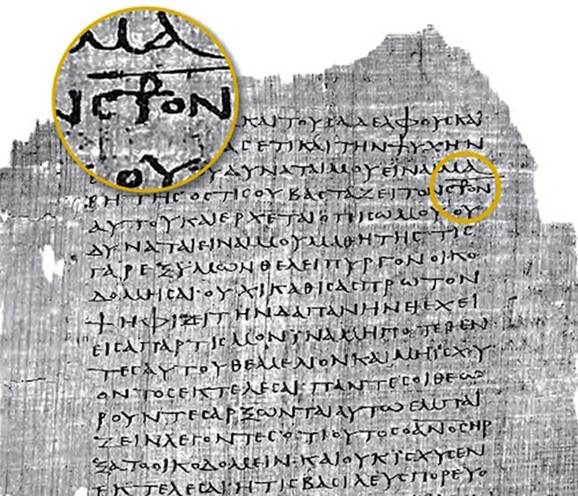 ΜΑ
ΝϹΤΡΟΝ
ΟΥ
ΚΑΙΤΟΥϹΑΔΕΛΦΟΥϹΚΑΙ
ΑϹΕΤΙΚΑΙΤΗΝΨΥΧΗΝ
ΟΥΔΥΝΑΤΑΙΜΟΥΕΙΝΑΙΜΑ
ΘΗΤΗϹΟϹΤΙϹΟΥΒΑϹΤΑΖΕΙΤΟΝϹΤΡΟΝ
ΑΥΤΟΥΚΑΙΕΡΧΕΤΑΙΟΠΙϹΩΜΟΥΟΥ
ΔΥΝΑΤΑΙΕΙΝΑΙΜΟΥΜΑΘΗΤΗϹΤΙϹ
ΓΑΡΕΞΥΜΩΝΘΕΛΕΙΠΥΡΓΟΝΟΙΚΟ
ΔΟΜΗϹΑΙ·ΟΥΧΙΚΑΘΙϹΑϹΠΡΩΤΟΝ
ΨΗΦΙΖΕΙΤΗΝΔΑΠΑΝΗΝΕΙΕΧΕΙ
ΕΙϹΑΠΑΡΤΙϹΜΟΝΙΝΑΜΗΠΟΤΕΘΕΝ
ΤΕϹΑΥΤΟΥΘΕΜΕΛΙΟΝΚΑΙΜΗΙϹΧΥ
ΟΝΤΟϹΕΚΤΕΛΕϹΑΙ·ΠΑΝΤΕϹΟΙΘΕΩ
ΡΟΥΝΤΕϹΑΡΞΩΝΤΑΙΑΥΤΩΕΜΠΑΙ
ΖΕΙΝΛΕΓΟΝΤΕϹ·ΟΤΙΟΥΤΟϹΟΑΝΟϹΗΡ
ΞΑΤΟΟΙΚΟΔΟΜΕΙΝ·ΚΑΙΟΥΚΙϹΧΥϹΕΝ
ΕΚΤΕΛΕϹΑΙ·ΗΤΙϹΒΑϹΙΛΕΥϹΠΟΡΕΥΟ